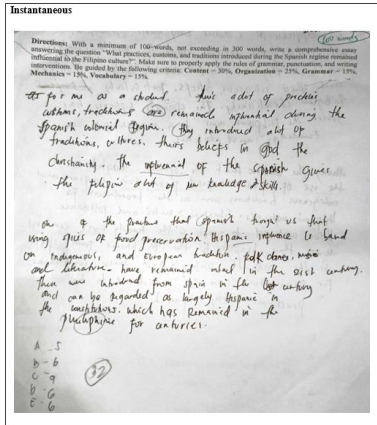 Instantaneous
100 words
Directions: With a minimum of 100-words, not exceeding in 300 words, write a comprehensive essay
answering the question "What practices, customs, and traditions introduced during the Spanish regime remained
influential to the Filipino culture?". Make sure to properly apply the rules of grammar, punctuation, and writing
interventions. Be guided by the following criteria: Content = 30%, Organization = 25%, Grammar = 15%,
Mechanics = 15%, Vocabulary = 15%.
for me as a student, alot of practice
customs, traditions are remained influential during the
Spanish colonial Regim. they introduced alot of
traditions, cultures, theirs beliefs in god the
christianity. the of the Spanish gives
the filipin alot of new knowledge & skills.
one of the practice that Spanish us that
using of food preservation Hispanic influence is band
on indegenous, and european tradition. folk dance, music
and literature. have remained intact in the 21st century.
These were introduced from spain in the century
and can be regarded as largely Hispanic in
the constitutions. which has Remained in the
philiphines for centuries.
A 5
B - 6
C - 9
D - 6
E - 6
32